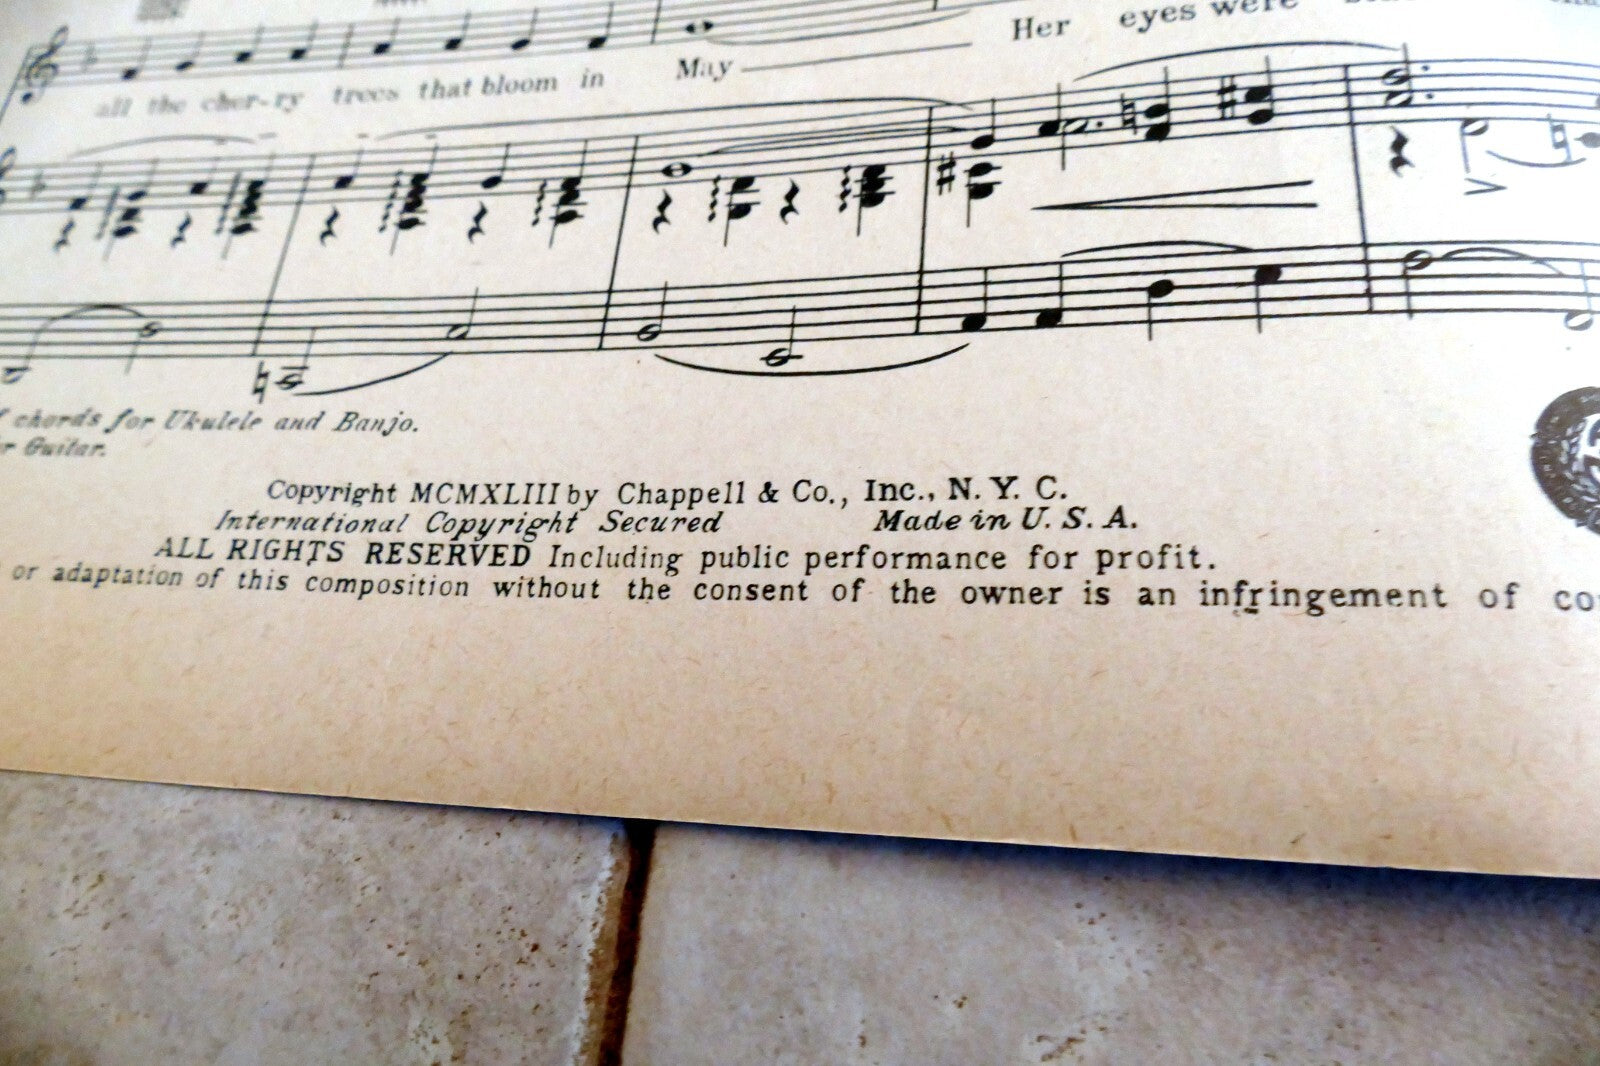 Her eyes were
all the cher-ry trees that bloom in May
chords for Ukulele and Banjo.
Guitar.
Copyright MCMXLIII by Chappell & Co., Inc., N. Y. C.
International Copyright Secured Made in U. S. A.
ALL RIGHTS RESERVED Including public performance for profit.
or adaptation of this composition without the consent of the owner is an infringement of